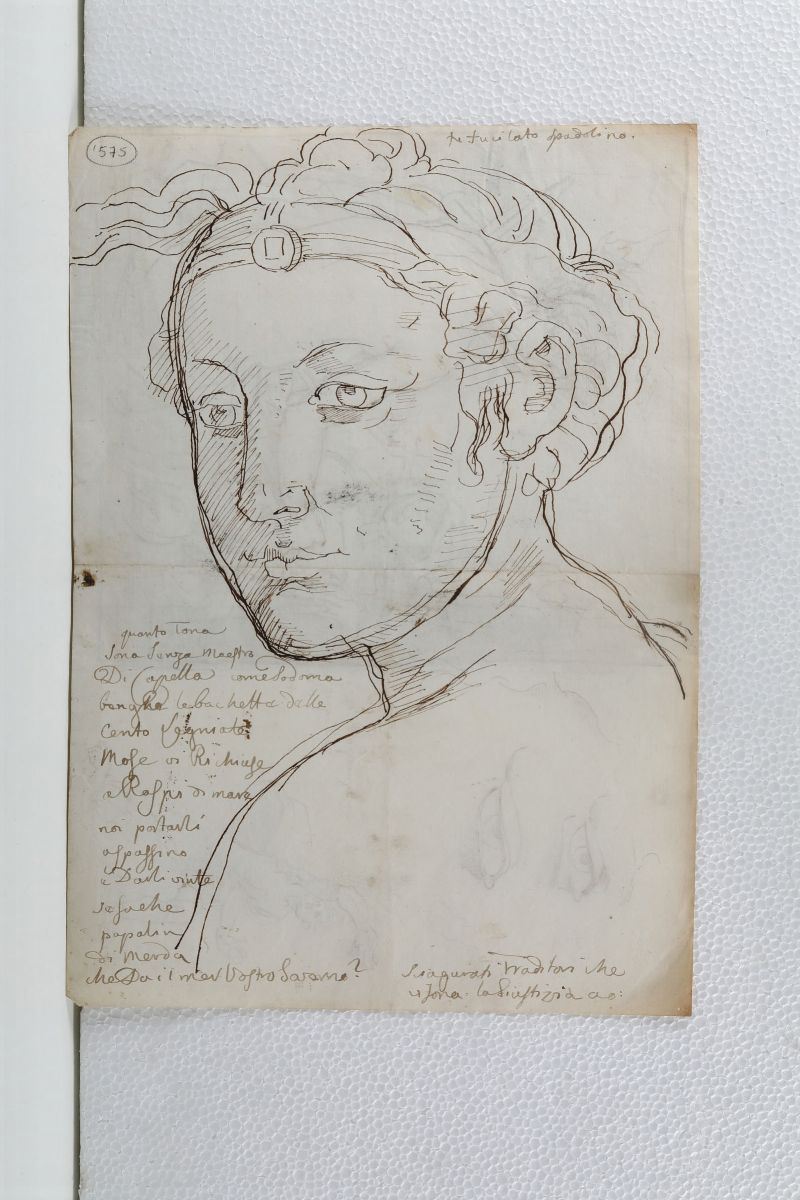 575
fucilato spadolino.
quanto Tona
Sona Senza Maestro
Di Capella come Sodoma
le bachetta delle
Cento Legniate
Mose vi Richiese
di mare
noi portarli
aspassino
e Darli vinte
se fache
papalin
di Merda
che Da il mer Vostro Saremo?
Sciagurati Traditori che
vi Tona: la Giustizia